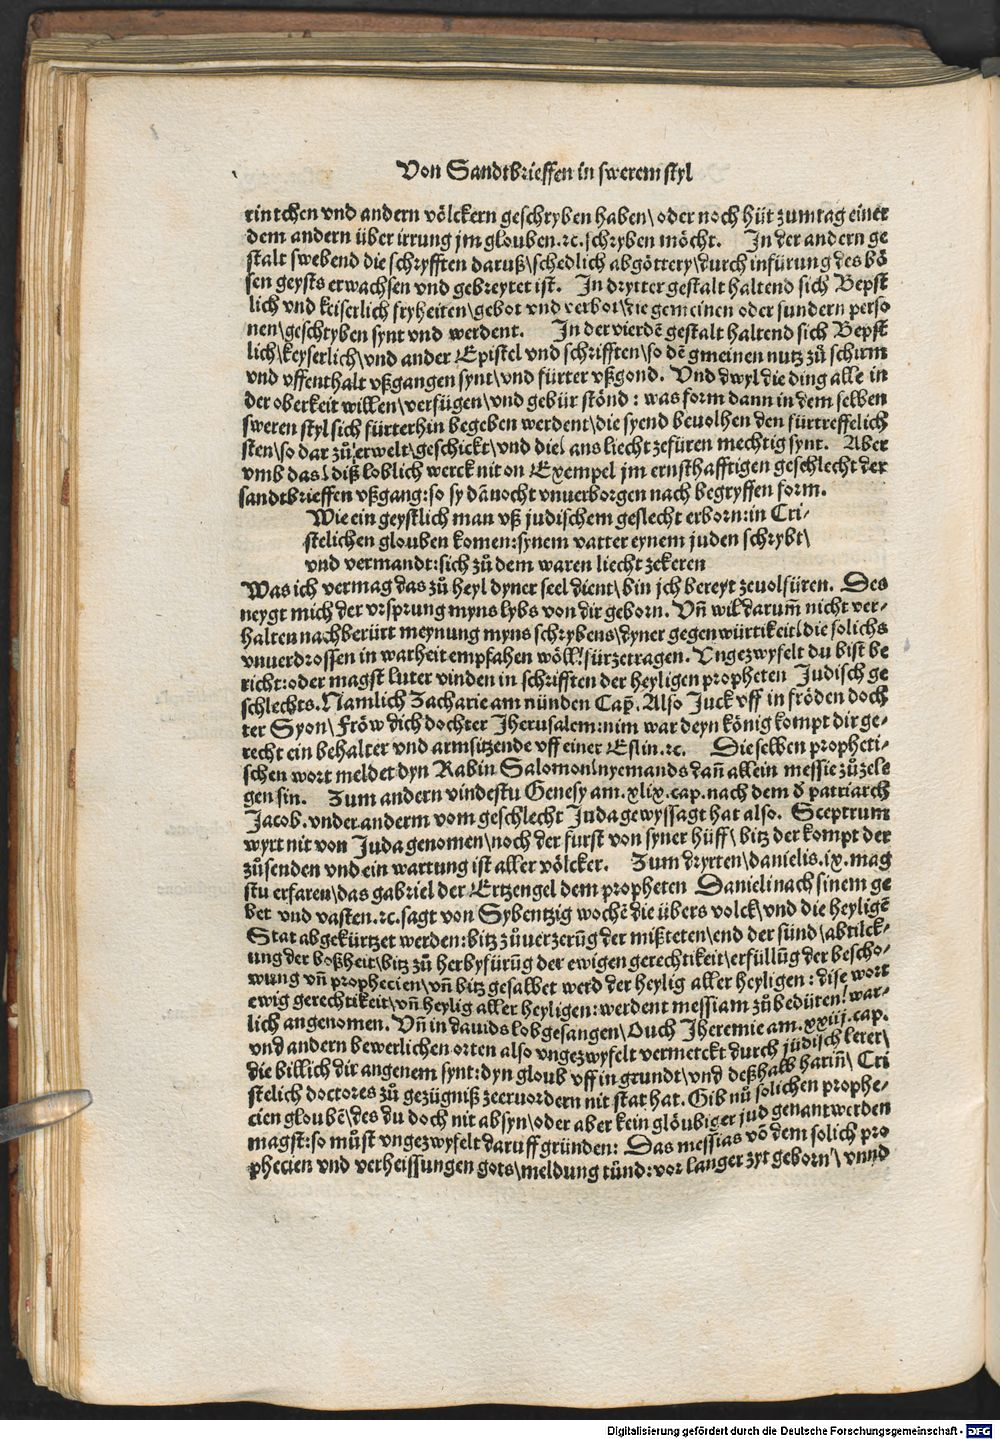 Von Sandtbrieffen in swerem styl
rintchen vnd andern völckern geschryben haben\ oder noch hüt zum tag einer
dem andern über irrung jm glouben.ꝛc. schryben möcht. In der andern ge
stalt swebend die schryfften daruß\ schedlich abgöttery\ durch infürung des bö
sen geysts erwachsen vnd gebreytet ist. In drytter gestalt haltend sich Bepst
lich vnd keiserlich fryheiten\ gebot vnd verbot\ die gemeinen oder sundern perso
nen\ geschryben synt vnd werdent. In der vierdē gestalt haltend sich Bepst
lich\ keyserlich\ vnd ander Epistel vnd schrifften\ so dē gmeinen nutz zů schirm
vnd vffenthalt vßgangen synt\ vnd fürter vßgond. Vnd dwyl die ding alle in
der oberkeit willen\ verfügen\ vnd gebür stönd: was form dann in dem selben
sweren styl sich fürterhin begeben werdent\ die syend beuolhen den fürtreffelich
sten\ so dar zů erwelt\ geschickt\ vnd die\ ans liecht zefüren mechtig synt. Aber
vmb das\ diß loblich werck nit on Exempel jm ernsthafftigen geschlecht der
sandtbrieffen vßgang: so sy dānocht vnuerborgen nach begryffen form.
Wie ein geystlich man vß judischem geslecht erborn: in Cri-
stelichen glouben komen: synem vatter eynem juden schrybt\
vnd vermandt: sich zů dem waren liecht zekeren
Was ich vermag das zů heyl dyner seel dient\ bin jch bereyt zeuolfüren. Des
neygt mich der vrsprung myns lybs von dir geborn. Vn̄ wil darum̄ nicht ver-
halten nachberürt meynung myns schrybens\ dyner gegenwürtikeit\ die solichs
vnuerdrossen in warheit empfahen wöll\ fürzetragen. Vngezwyfelt du bist be
richt: oder magst luter vinden in schrifften der heyligen propheten Judisch ge
schlechts. Namlich Zacharie am nünden Cap̄. Also Juck vff in fröden doch
ter Syon\ Fröw dich dochter Jherusalem: nim war deyn könig kompt dir ge-
recht ein behalter vnd arm sitzende vff einer Eslin.ꝛc. Die selben propheti-
schen wort meldet dyn Rabin Salomon\ nyemands dan̄ allein messie zůzele
gen sin. Zum andern vindestu Genesy am.xlix.cap. nach dem d̄ patriarch
Jacob. vnder anderm vom geschlecht Juda gewyssagt hat also. Sceptrum
wyrt nit von Juda genomen\ noch der furst von syner hüff\ bitz der kompt der
zůsenden vnd ein wartung ist aller völcker. Zum drytten\ danielis.ix. mag
stu erfaren\ das gabriel der Ertzengel dem propheten Danieli nach sinem ge
bet vnd vasten.ꝛc. sagt von Sybentzig wochē die übers volck\ vnd die heyligē
Stat abgekürtzet werden: bitz zů uerzerūg der mißteten\ end der sünd\ abtilck-
ung der boßheit\ bitz zů herbyfürūg der ewigen gerechtikeit\ erfüllūg der bescho-
wung vn̄ prophecien\ vn̄ bitz gesalbet werd der heylig aller heyligen: dise wort
ewig gerechtikeit\ vn̄ heylig aller heyligen: werdent messiam zů bedüten\ war-
lich angenomen. Vn̄ in dauids lobgesangen\ Ouch Jheremie am.xxiij.cap.
vnd andern bewerlichen orten also vngezwyfelt vermerckt durch jüdisch lerer\
die billich dir angenem synt: dyn gloub vff in grundt\ vnd deßhalb harin̄\ Cri
stelich doctores zů gezügniß zeeruordern nit stat hat. Gib nů solichen prophe-
cien gloubē\ des du doch nit absyn\ oder aber kein glöubiger jud genant werden
magst: so můst vngezwyfelt daruff gründen: Das messias vō dem solich pro
phecien vnd verheissungen gots\ meldung tünd: vor langer zyt geborn\ vnnd
Digitalisierung gefördert durch die Deutsche Forschungsgemeinschaft - DFG